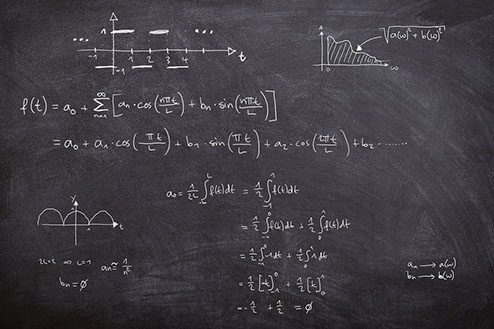 ... 1 ...
-1 1 2 3 4 t
-1
1 √(a(ω)² + b(ω)²)
ω
f(t) = a₀ + ∞∑n=1 [an·cos(nπt/L) + bn·sin(nπt/L)]
= a₀ + a₁·cos(πt/L) + b₁·sin(πt/L) + a₂·cos(2πt/L) + b₂........
a₀ = 1/2L ∫-L^L f(t)dt = 1/2 ∫-1^1 f(t)dt
= 1/2 ∫-1^0 f(t)dt + 1/2 ∫0^1 f(t)dt
= 1/2 ∫-1^0 -1dt + 1/2 ∫0^1 1dt
= 1/2 [-t]-1^0 + 1/2 [t]0^1
= -1/2 + 1/2 = ∅
y
t
2L=2 ⇒ L=1 an≈ 1/n²
bn = ∅
an → a(ω)
bn → b(ω)